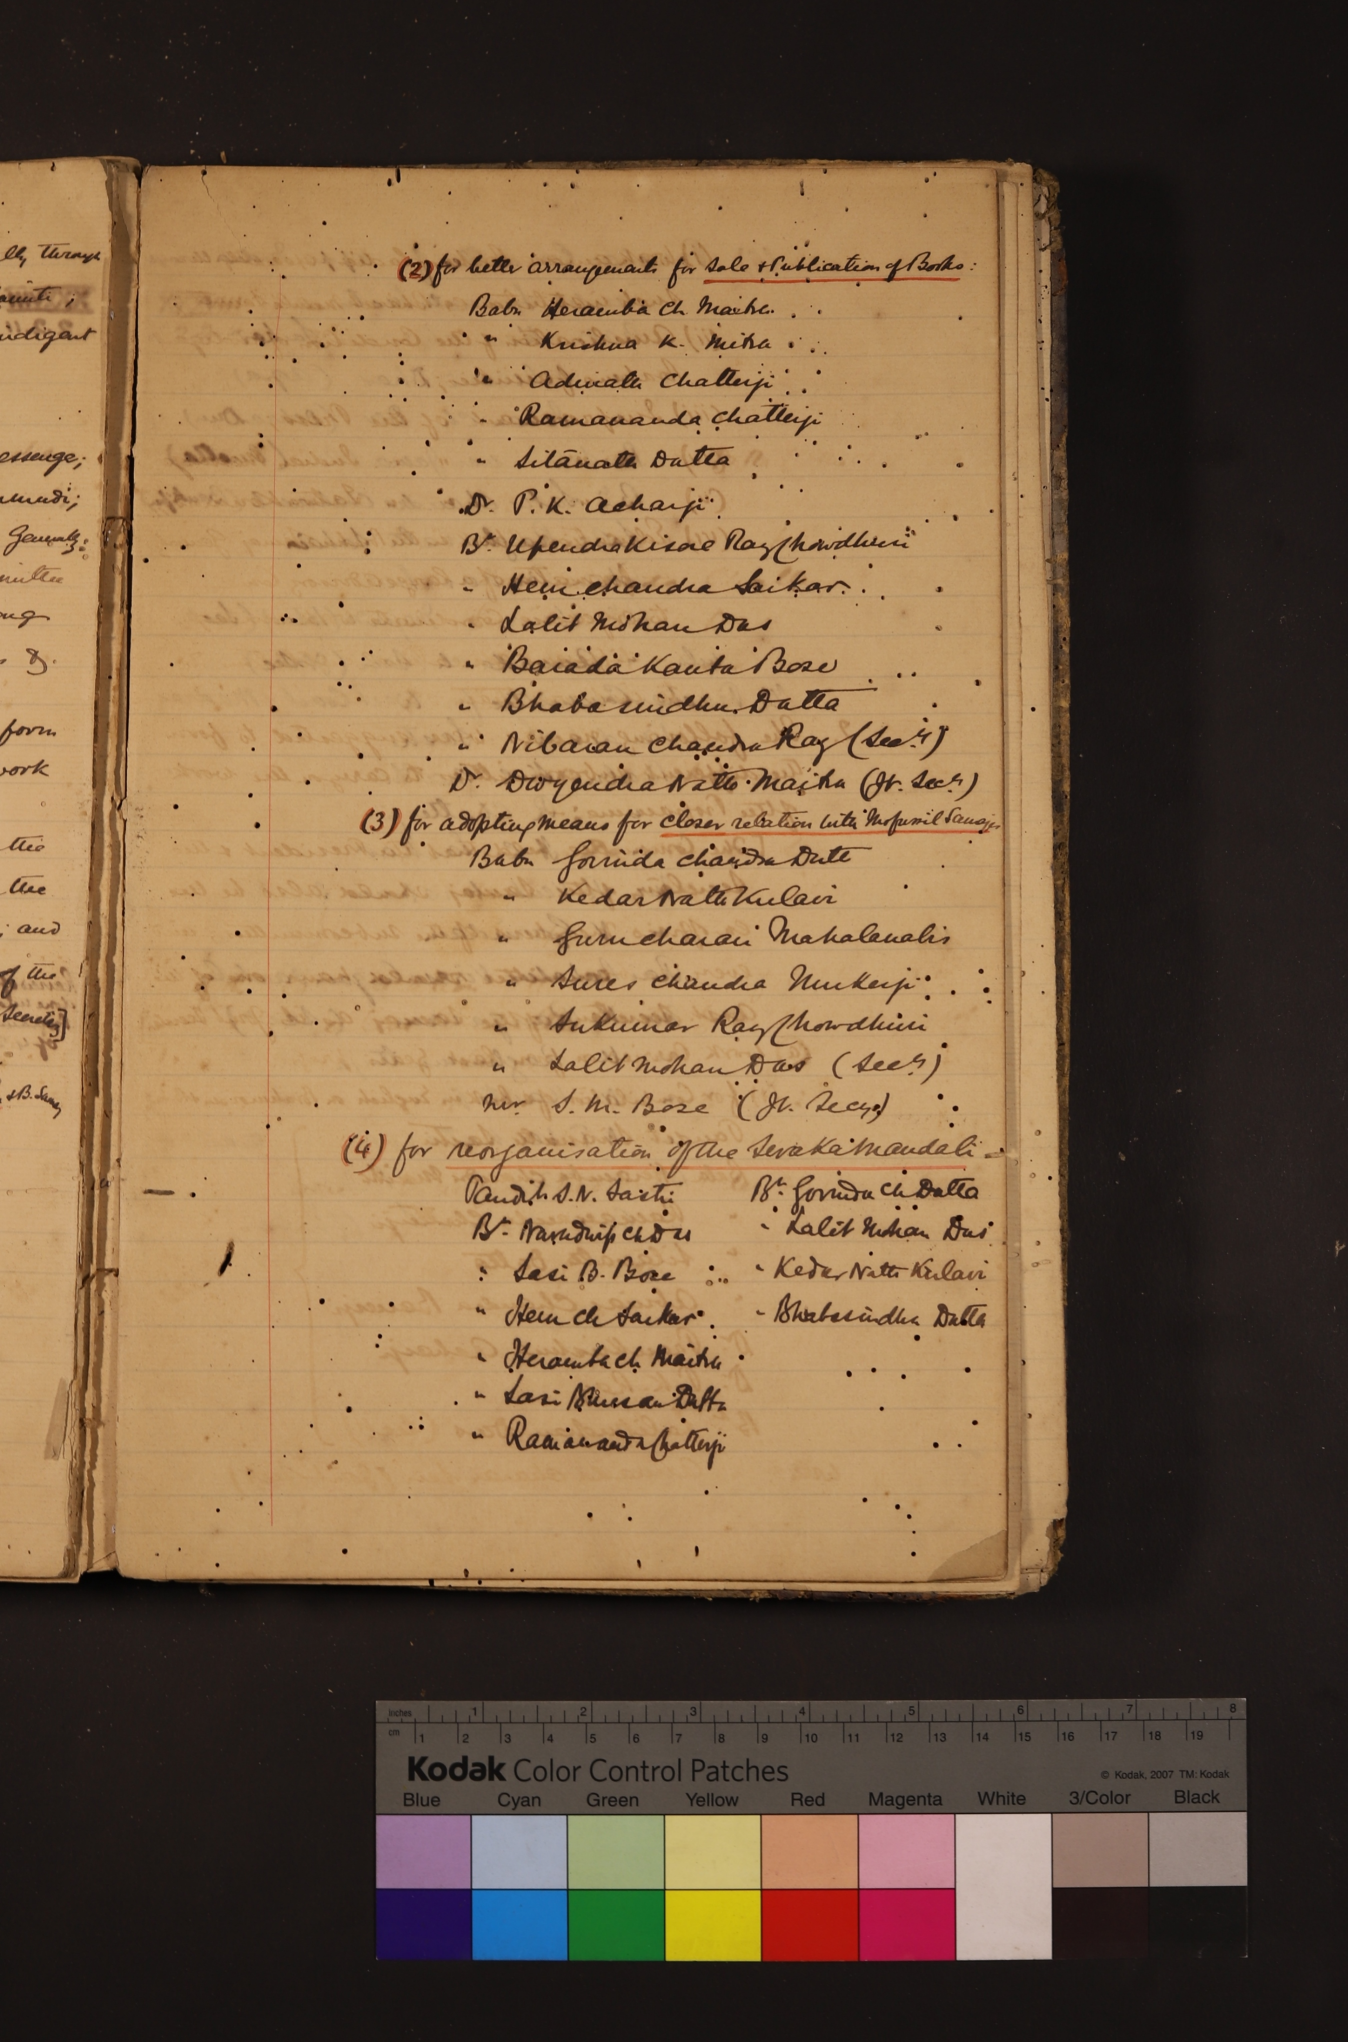 lly through
indigent
essenge;
Generally;
mittee
form
work
the
the
; and
of the
Secretary]
& B. Samaj
(2) for better arrangements for Sale & Publication of Books:
Babu Heramba Ch. Maitra
" Krishna K. Mitra
" Adinath Chatterji
" Ramananda Chatterji
" Sitānath Datta
Dr. P. K. Acharji
Bu. Upendrakisore Ray Chowdhuri
" Hem chandra Sarkar
" Lalit Mohan Das
" Barada Kanta Bose
" Bhabasindhu Datta
" Nibaran Chandra Ray (Secy.)
Dr. Dwijendra Nath Maitra (Jt. Secy.)
(3) for adopting means for closer relation with Mofussil Samajes
Babu Govinda Chandra Dutt
" Kedar Nath Kulavi
" Gurucharan Mahalanabis
" Sures Chandra Mukerji
" Sukumar Ray Chowdhuri
" Lalit Mohan Das (Secy.)
Mr. S. M. Bose (Jt. Secy.)
(4) for reorganisation of the Sevaka Mandali -
Pandit S. N. Sastri Bu. Govinda Ch Datta
Bu. Navadwip Ch Das " Lalit Mohan Das
" Sasi B. Bose " Kedar Nath Kulavi
" Hem Ch Sarkar " Bhabasindhu Datta
" Heramba Ch. Maitra
" Sasi Bhusan Datta
" Ramananda Chatterji
Inches 1 2 3 4 5 6 7 8
cm 1 2 3 4 5 6 7 8 9 10 11 12 13 14 15 16 17 18 19
Kodak Color Control Patches © Kodak, 2007 TM: Kodak
Blue Cyan Green Yellow Red Magenta White 3/Color Black